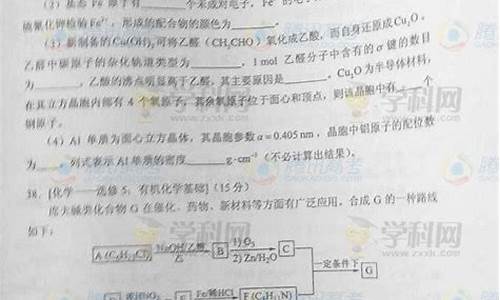 (2) 基态 Fe 原子有______个未成对电子，Fe³⁺的电
硫氰化钾检验 Fe³⁺，形成的配合物的颜色为______。
(3) 新制备的 Cu(OH)₂可将乙醛（CH₃CHO）氧化成乙酸，而自身还原成Cu₂O。
乙醛中碳原子的杂化轨道类型为______，1 mol 乙醛分子中含有的σ键的数目
为______，乙酸的沸点明显高于乙醛，其主要原因是______。Cu₂O为半导体材料，
在其立方晶胞内部有 4 个氧原子，其余氧原子位于面心和顶点，则该晶胞中有______个
铜原子。
(4) Al 单质为面心立方晶体，其晶胞参数 a = 0.405 nm，晶胞中铝原子的配位数
为______。列式表示 Al 单质的密度______g·cm⁻³（不必计算出结果）。
38. [化学——选修 5：有机化学基础]（15 分）
席夫碱类化合物 G 在催化、药物、新材料等方面有广泛应用，合成 G 的一种路线
如下：
A (C₆H₁₃Cl) NaOH/乙醇 △ B 1) O₃ 2) Zn/H₂O C
一定条件下 G
Fe/稀HCl F (C₈H₁₁N)
学科网
www.zxxk.com
腾讯高考